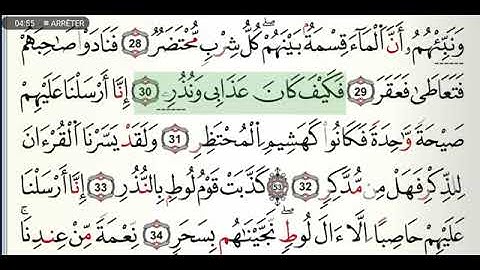 04:55 ■ ARRÊTER
وَنَبِّئْهُمْ أَنَّ ٱلْمَآءَ قِسْمَةٌۢ بَيْنَهُمْ ۖ كُلُّ شِرْبٍ مُّحْتَضَرٌ 28 فَنَادَوْا۟ صَاحِبَهُمْ
فَتَعَاطَىٰ فَعَقَرَ 29 فَكَيْفَ كَانَ عَذَابِى وَنُذُرِ 30 إِنَّآ أَرْسَلْنَا عَلَيْهِمْ
صَيْحَةً وَٰحِدَةً فَكَانُوا۟ كَهَشِيمِ ٱلْمُحْتَظِرِ 31 وَلَقَدْ يَسَّرْنَا ٱلْقُرْءَانَ
لِلذِّكْرِ فَهَلْ مِن مُّدَّكِرٍ 32 53 كَذَّبَتْ قَوْمُ لُوطٍۭ بِٱلنُّذُرِ 33 إِنَّآ أَرْسَلْنَا
عَلَيْهِمْ حَاصِبًا إِلَّآ ءَالَ لُوطٍ ۖ نَّجَّيْنَٰهُم بِسَحَرٍ 34 نِّعْمَةً مِّنْ عِندِنَا ۚ